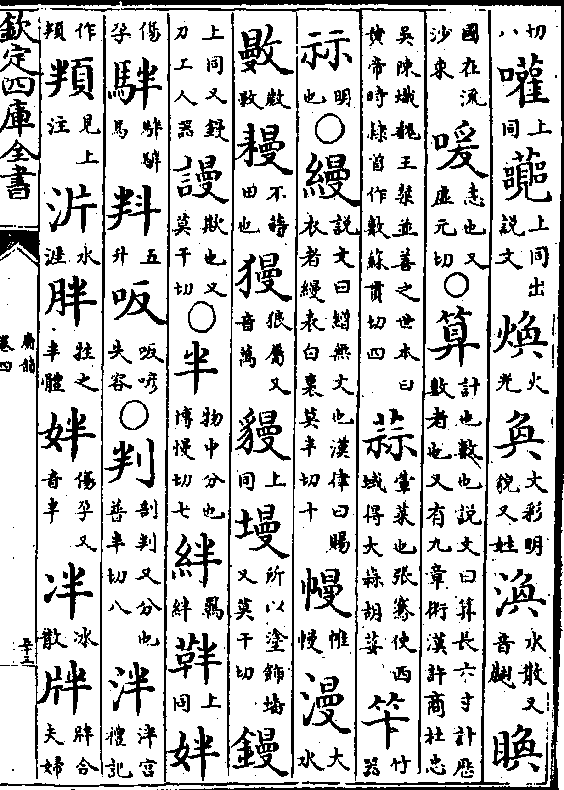 切八嚾上同上同出說文煥火光奐文彩明貌又姓渙水散又音㬇
國在流沙東喛恚也又虛元切○算計也數也說文曰筭長六寸計歷數者也又有九章術漢許商杜忠
吳陳熾魏王粲並善之世本曰黃帝時隸首作數蘇貫切四蒜葷菜也張騫使西域得大蒜胡荽笇竹器
祘明也○縵說文曰繒無文也漢律曰賜衣者縵表白裏莫半切十幔帷幔漫大水
𦔔不蒔田也獌狼屬又音萬貓上同墁所以塗飾墻又莫干切鏝
上同又刀工人器謾欺也又莫干切○半物中分也博慢切七絆羈絆靽上同姅
傷孕馬五升㕫㕫喭失容○判剖判又分也普半切八泮泮宮禮記
作頖頖見上注沜水涯胖牲之半體姅傷孕又音半冸冰散牉牉合夫婦
欽定四庫全書
廣韻
卷四